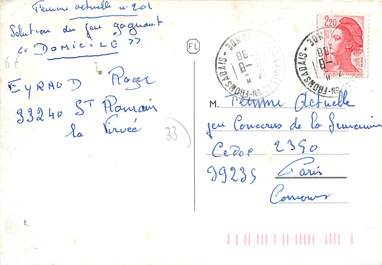 Femme actuelle n° 201
Solution du jeu gagnant
« DOMICILE »
EYRAUD Roger
33240 St Romain
la Virvée
33
FL
2,20
M. Femme Actuelle
jeu Concours de la Semaine
Cedex 2390
99235 Paris
Concours